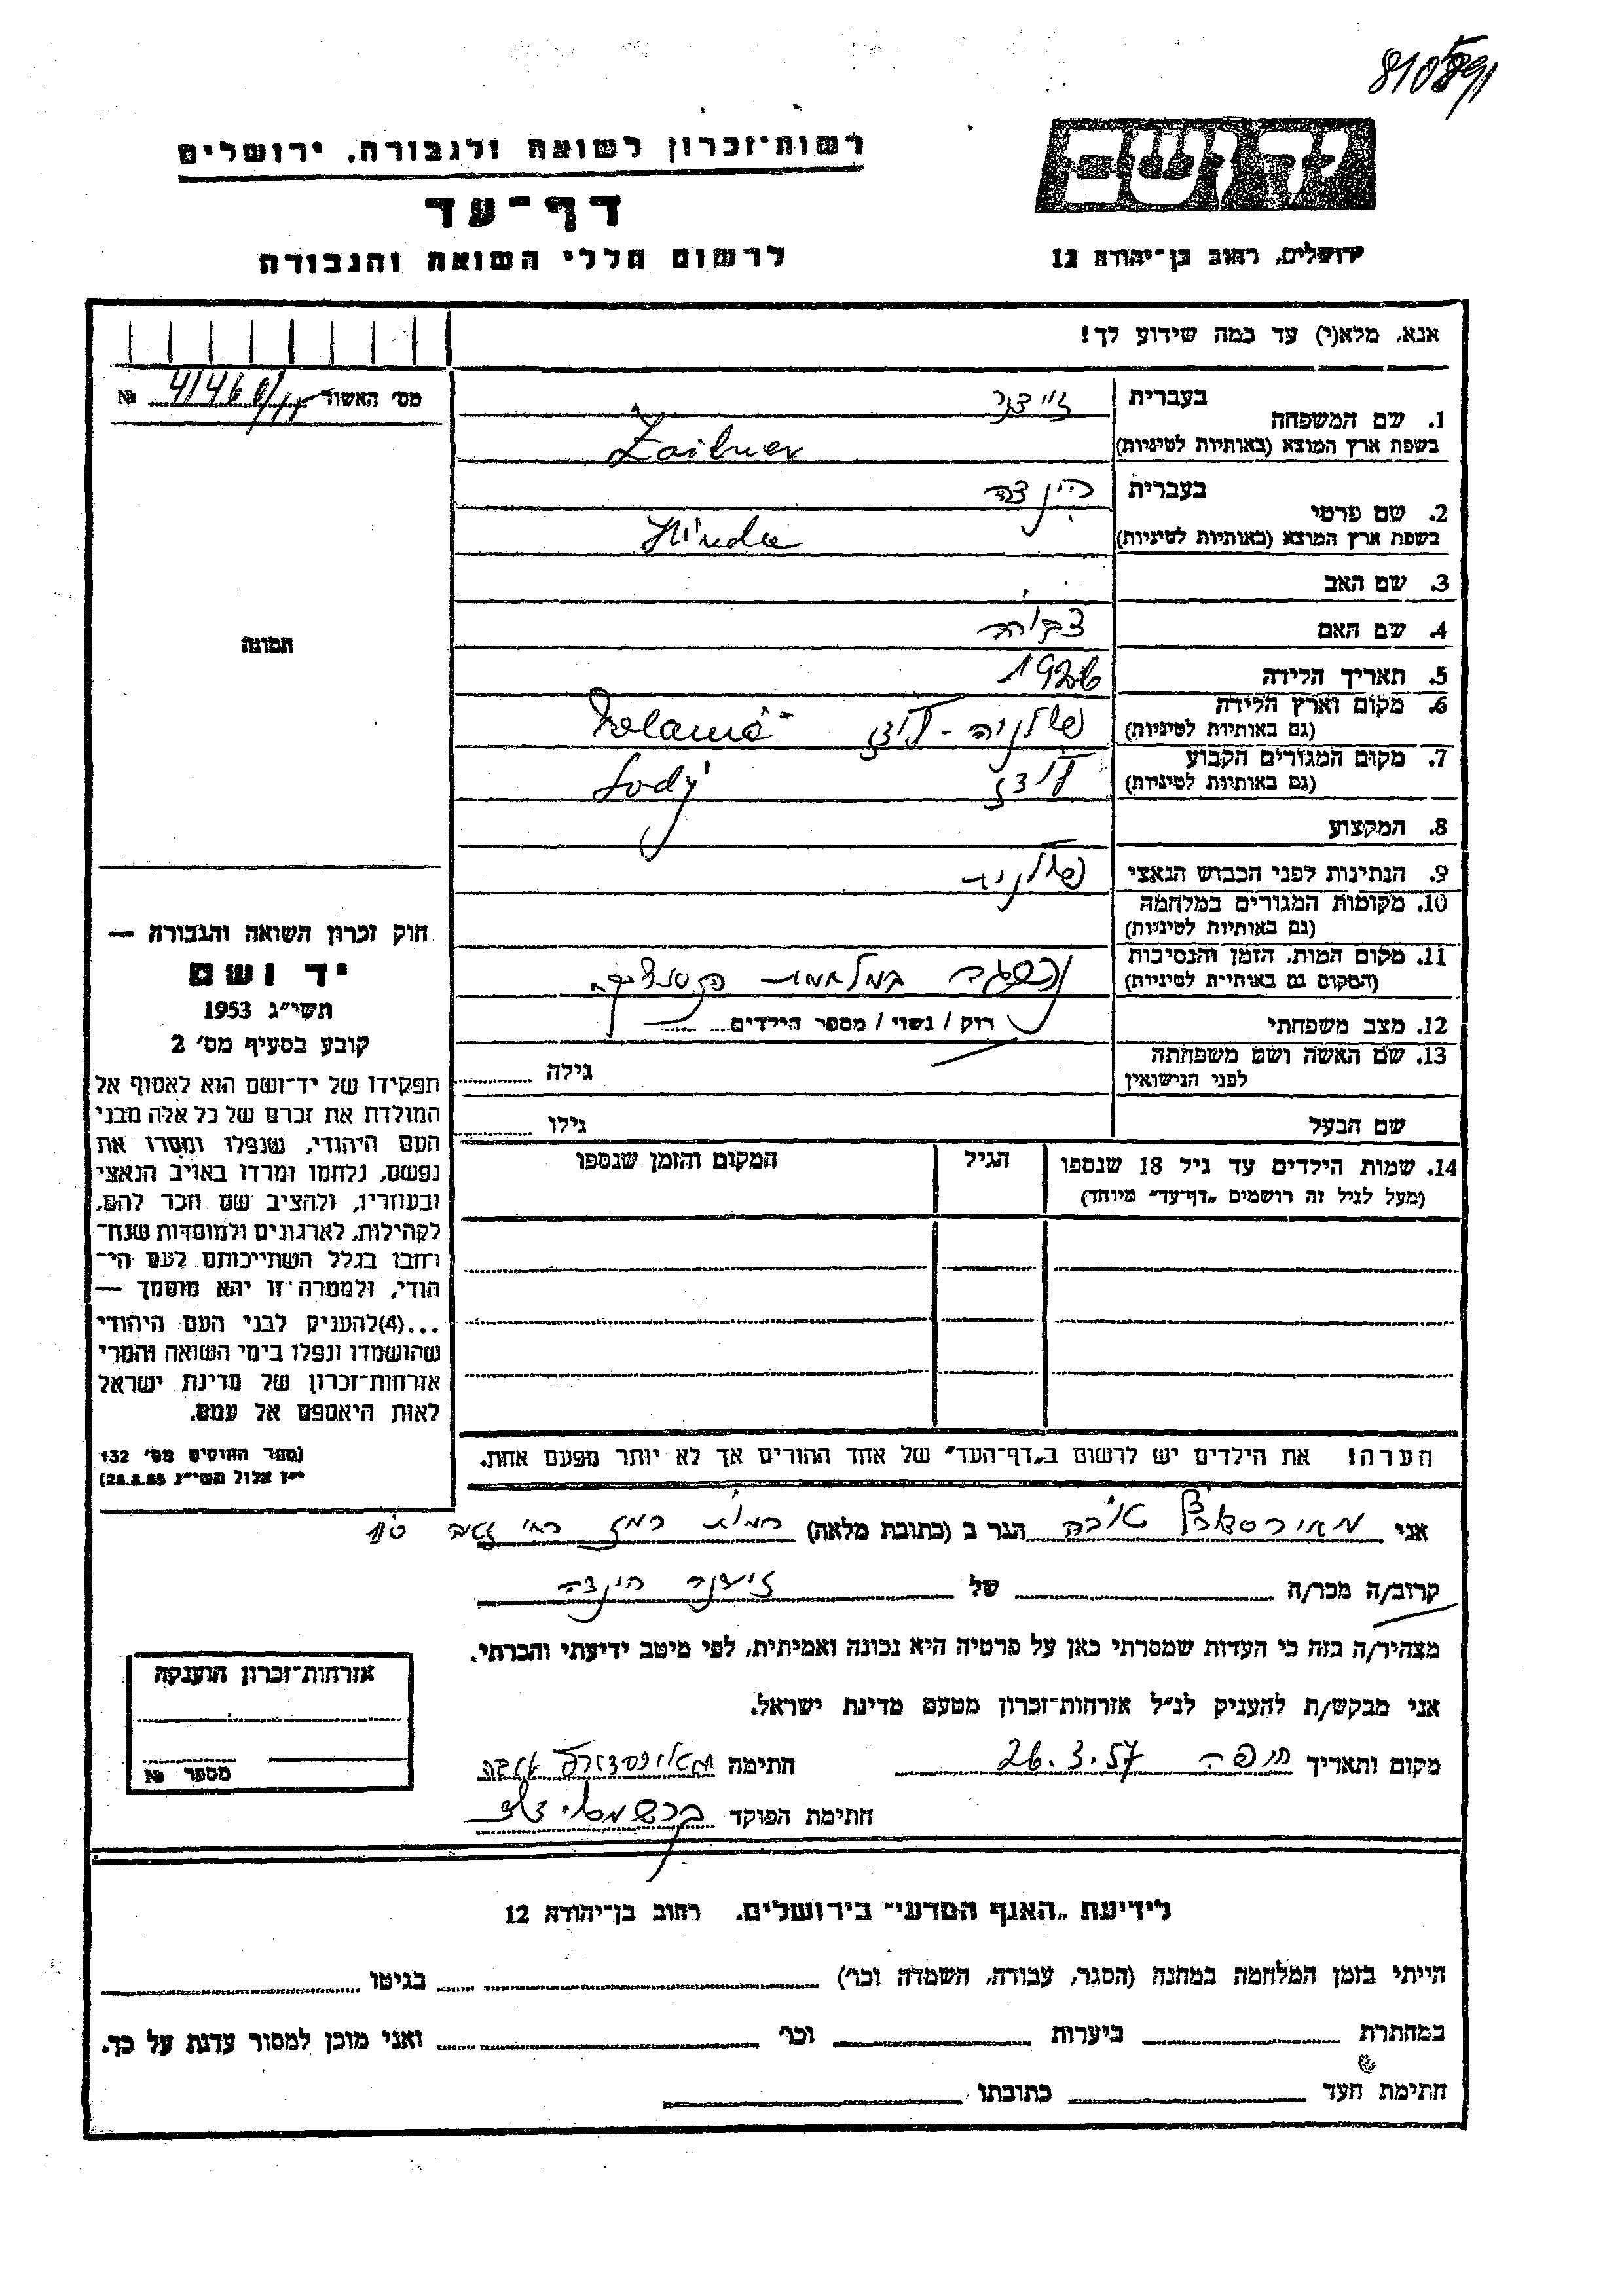 רשות־זכרון לשואה ולגבורה, ירושלים
יד ושם
דף־עד
לרשום חללי השואה והגבורה
ירושלים, רחוב בן־יהודה 12
אנא, מלא(י) עד כמה שידוע לך!
מס׳ האשור № 
1. שם המשפחה בעברית זייצנר
בשפת ארץ המוצא (באותיות לטיניות) Zaitner
2. שם פרטי בעברית הינדה
בשפת ארץ המוצא (באותיות לטיניות) Hinda
3. שם האב
4. שם האם צביה
תמונה
5. תאריך הלידה 1926
6. מקום וארץ הלידה פולניה - לודז
(גם באותיות לטיניות)
7. מקום המגורים הקבוע לודז
(גם באותיות לטיניות)
8. המקצוע
9. הנתינות לפני הכבוש הנאצי פולניה
10. מקומות המגורים במלחמה
(גם באותיות לטיניות)
11. מקום המות, הזמן והנסיבות
(המקום גם באותיות לטיניות) במלחמת
12. מצב משפחתי רוק / נשוי / מספר הילדים
13. שם האשה ושם משפחתה גילה
לפני הנישואין
שם הבעל גילו
14. שמות הילדים עד גיל 18 שנספו הגיל המקום והזמן שנספו
(מעל לגיל זה רושמים „דף־עד״ מיוחד)
הערה! את הילדים יש לרשום ב„דף־העד״ של אחד ההורים אך לא יותר מפעם אחת.
חוק זכרון השואה והגבורה —
יד ושם
תשי״ג 1953
קובע בסעיף מס׳ 2
תפקידו של יד־ושם הוא לאסוף אל
המולדת את זכרם של כל אלה מבני
העם היהודי, שנפלו ומסרו את
נפשם, נלחמו ומרדו באויב הנאצי
ובעוזריו, ולהציב שם וזכר להם,
לקהילות, לארגונים ולמוסדות שנח־
רחבו בגלל השתייכותם לעם הי־
הודי, ולמטרה זו יהא מוסמך —
...(4)להעניק לבני העם היהודי
שהושמדו ונפלו בימי השואה והמרי
אזרחות־זכרון של מדינת ישראל
לאות היאספם אל עמם.
(ספר החוקים מס׳ 132
י״ז אלול תשי״ג 28.8.53)
אני טובה הגר ב (כתובת מלאה) רמת רמז
קרוב/ה מכר/ה של זייצנר הינדה
מצהיר/ה בזה כי העדות שמסרתי כאן על פרטיה היא נכונה ואמיתית, לפי מיטב ידיעתי והכרתי.
אני מבקש/ת להעניק לנ״ל אזרחות־זכרון מטעם מדינת ישראל.
מקום ותאריך חיפה 26.3.57 חתימה
חתימת הפוקד
אזרחות־זכרון הוענקה
מספר №
לידיעת „האגף המדעי״ בירושלים, רחוב בן־יהודה 12
הייתי בזמן המלחמה במחנה (הסגר, עבודה, השמדה וכו׳) בגיטו
במחתרת ביערות וכו׳ ואני מוכן למסור עדות על כך.
חתימת העד כתובתו